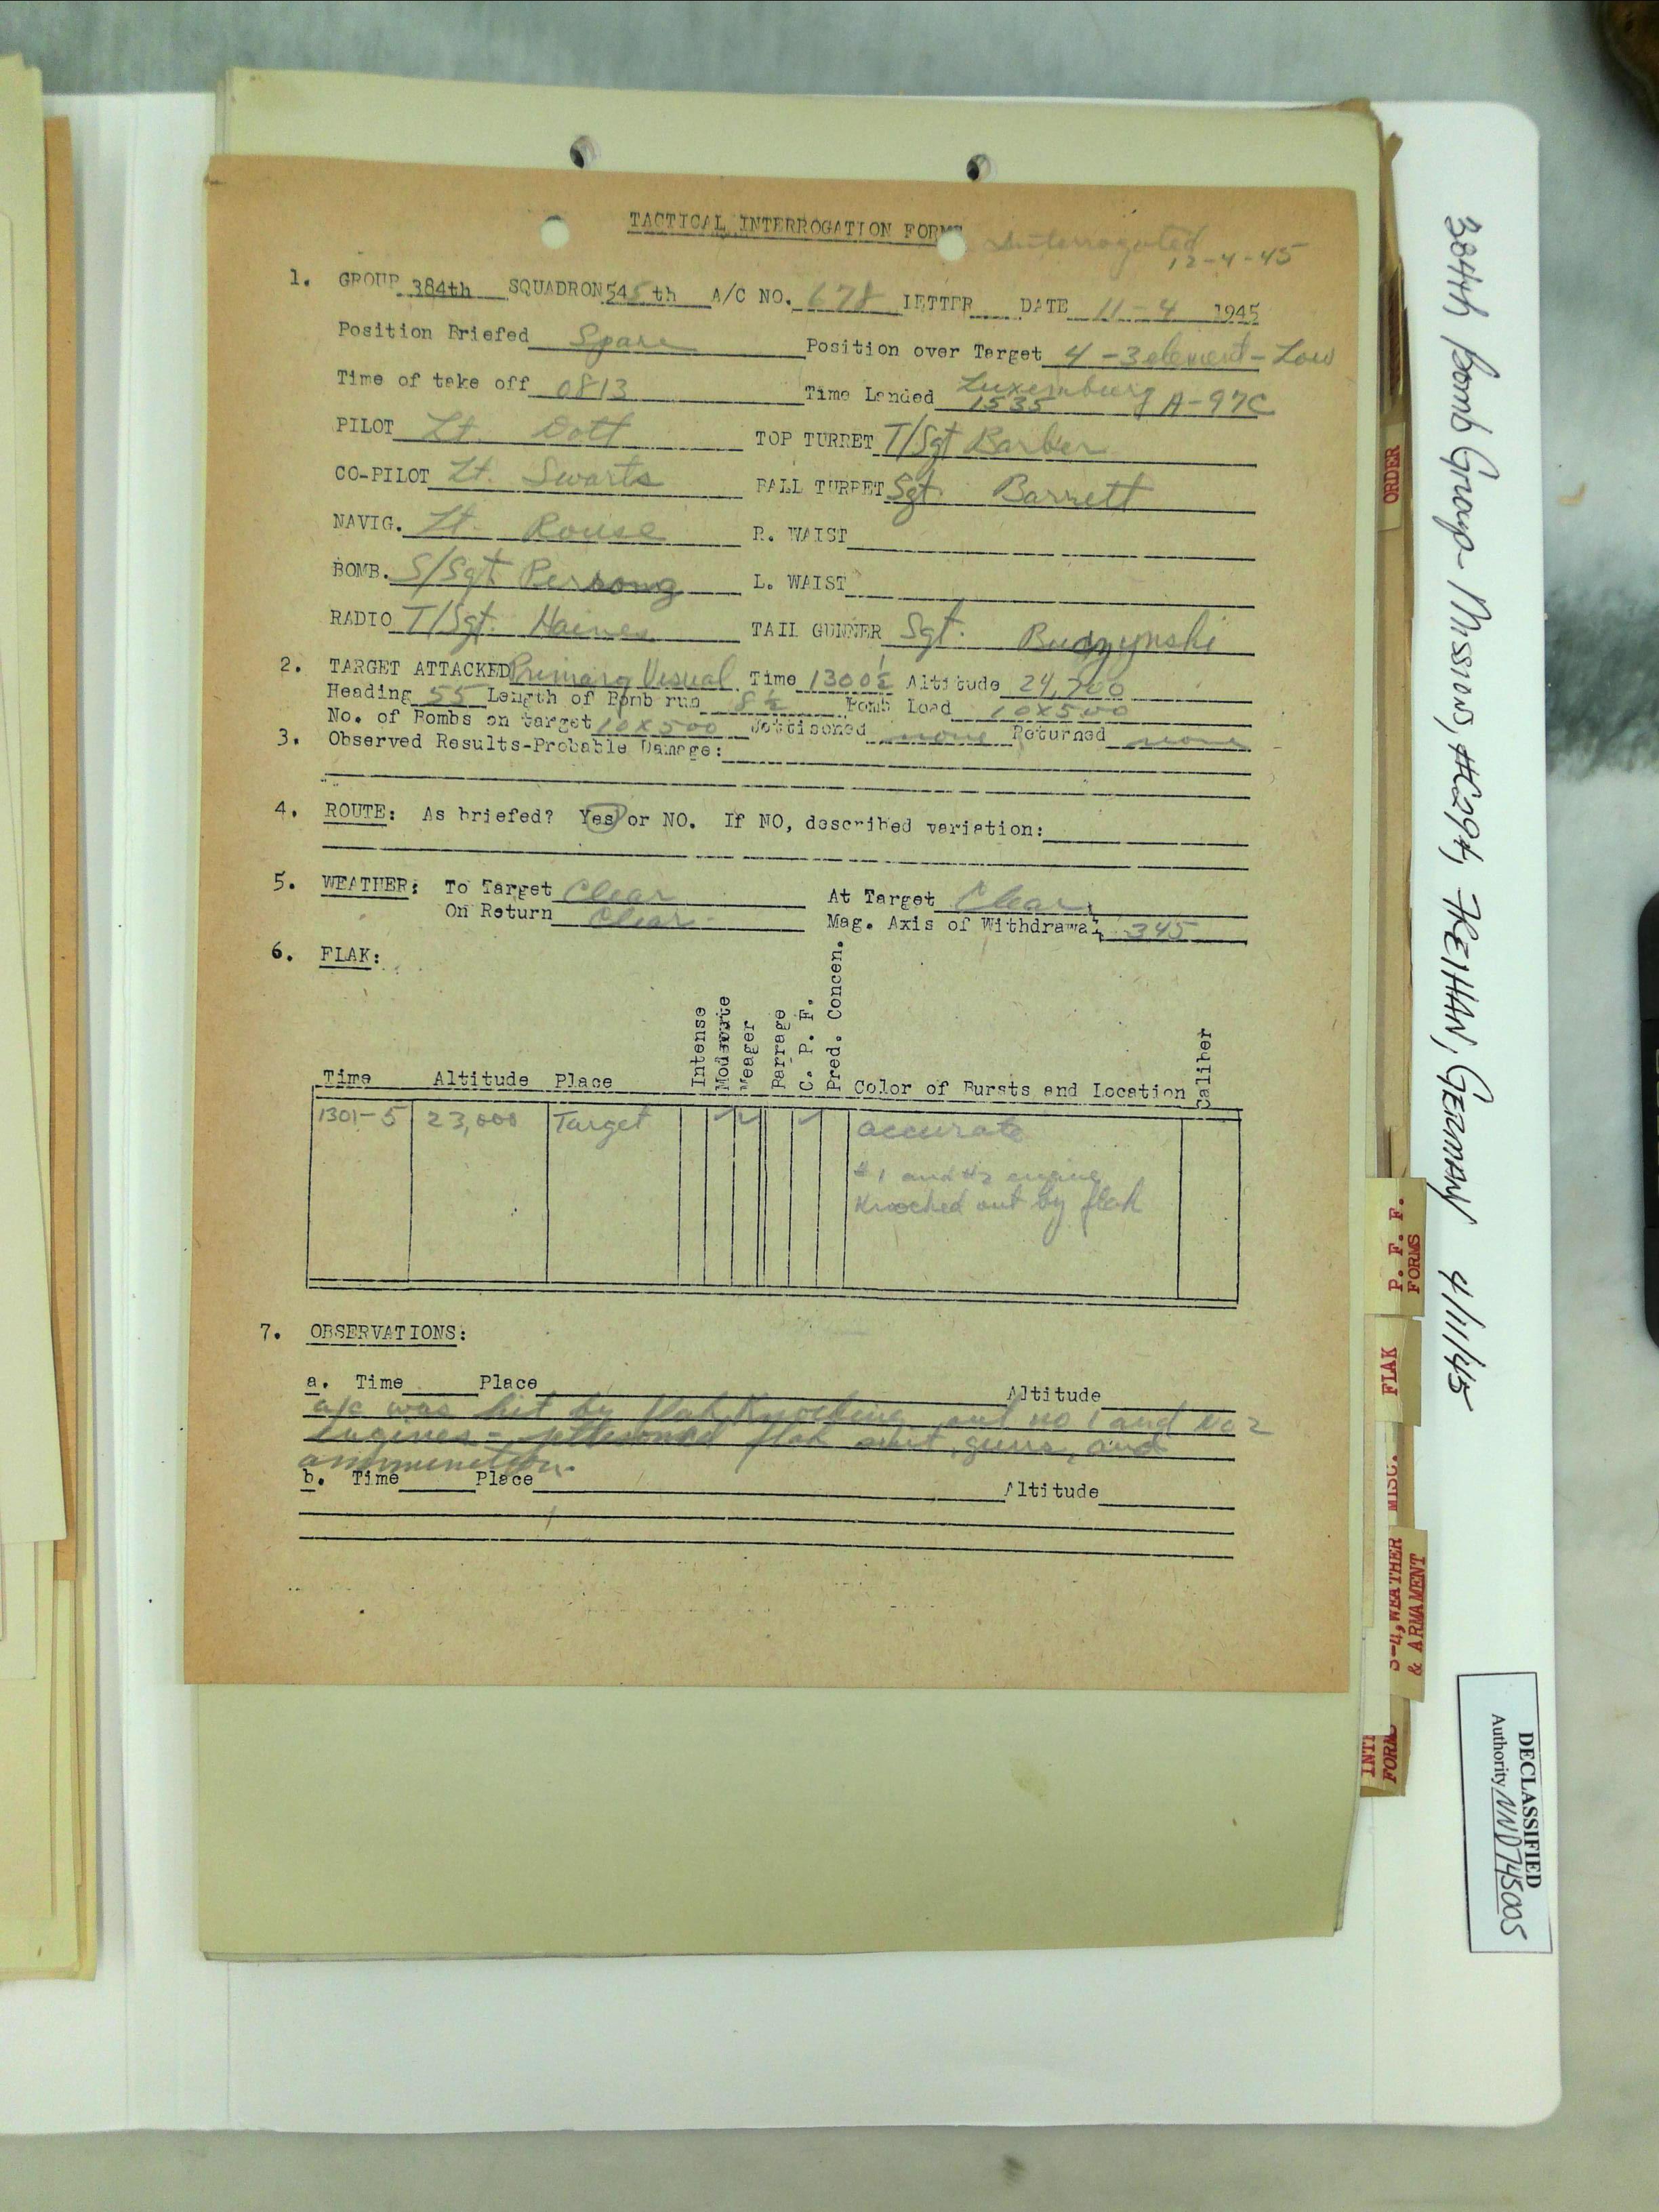 TACTICAL INTERROGATION FORM
Interrogated
12-4-45
1. GROUP 384th SQUADRON 545th A/C NO. 678 LETTER DATE 11-4 1945
Position Briefed Spare Position over Target 4-3 element-Low
Time of take off 0813 Time Landed Luxemburg 1535 A-97C
PILOT Lt. Dott TOP TURRET T/Sgt Barber
CO-PILOT Lt. Swarts BALL TURRET Sgt. Barrett
NAVIG. Lt. Rouse R. WAIST
BOMB. S/Sgt Persong L. WAIST
RADIO T/Sgt. Haines TAIL GUNNER Sgt. Budzynski
2. TARGET ATTACKED Primary Visual Time 1300½ Altitude 24,700
Heading 55 Length of Bomb run 8½ Bomb Load 10x500
No. of Bombs on target 10x500 Jettisoned none Returned none
3. Observed Results-Probable Damage:
4. ROUTE: As briefed? Yes or NO. If NO, described variation:
5. WEATHER: To Target Clear At Target Clear
On Return Clear Mag. Axis of Withdrawal 345
6. FLAK:
Time Altitude Place Intense Moderate Meager Barrage C. P. F. Pred. Concen. Color of Bursts and Location Caliber
1301-5 23,000 Target ✓ ✓ ✓ accurate
#1 and #2 engine
Knocked out by flak
7. OBSERVATIONS:
a. Time Place Altitude
a/c was hit by flak Knocking out no 1 and no 2
engines - jettisoned flak suit, guns, and
ammunition.
b. Time Place Altitude
ORDER
P. F. F.
FORMS
FLAK
MISC.
S-4, WEATHER
& ARMAMENT
FORMS
384th Bomb Group - Missions, #C294, FREIHAN, GERMANY 4/11/45
DECLASSIFIED
Authority NND745005